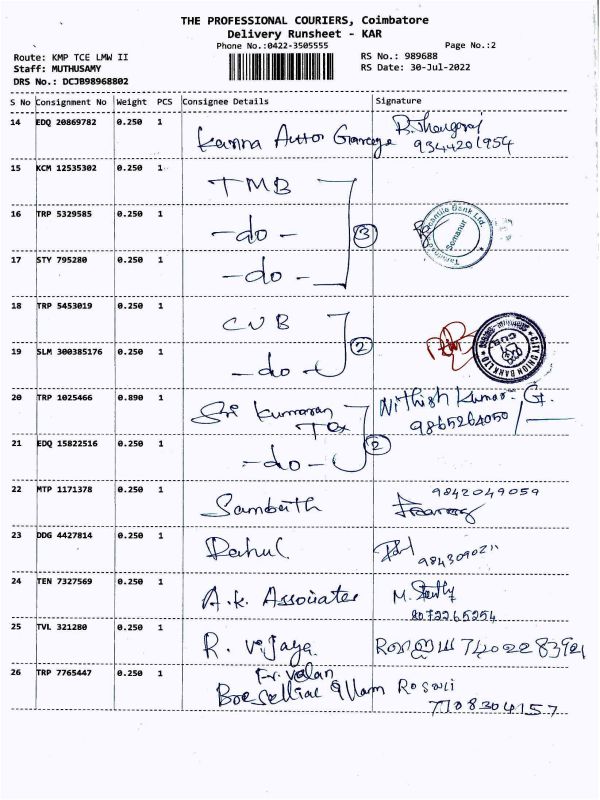 THE PROFESSIONAL COURIERS, Coimbatore
Delivery Runsheet - KAR
Phone No.:0422-3505555
Page No.:2
Route: KMP TCE LMW II
RS No.: 989688
Staff: MUTHUSAMY
RS Date: 30-Jul-2022
DRS No.: DCJB98968802
S No Consignment No Weight PCS Consignee Details Signature
14 EDQ 20869782 0.250 1 Kanna Auto Garage
9344201954
15 KCM 12535302 0.250 1 TMB
16 TRP 5329585 0.250 1 -do-
3
17 STY 795280 0.250 1 -do-
18 TRP 5453019 0.250 1 CUB
CITY UNION BANK LTD
CUB
19 SLM 300385176 0.250 1 -do-
2
20 TRP 1025466 0.890 1 Sri Kumaran Tex Nithish Kumar. G.
9865264050
21 EDQ 15822516 0.250 1 -do-
2
22 MTP 1171378 0.250 1 Sambath 9842049059
23 DDG 4427814 0.250 1 Rahul
24 TEN 7327569 0.250 1 A.K. Associates
8072265254
25 TVL 321280 0.250 1 R. Vijaya
26 TRP 7765447 0.250 1 Fr. Valan
Illam
7708304157